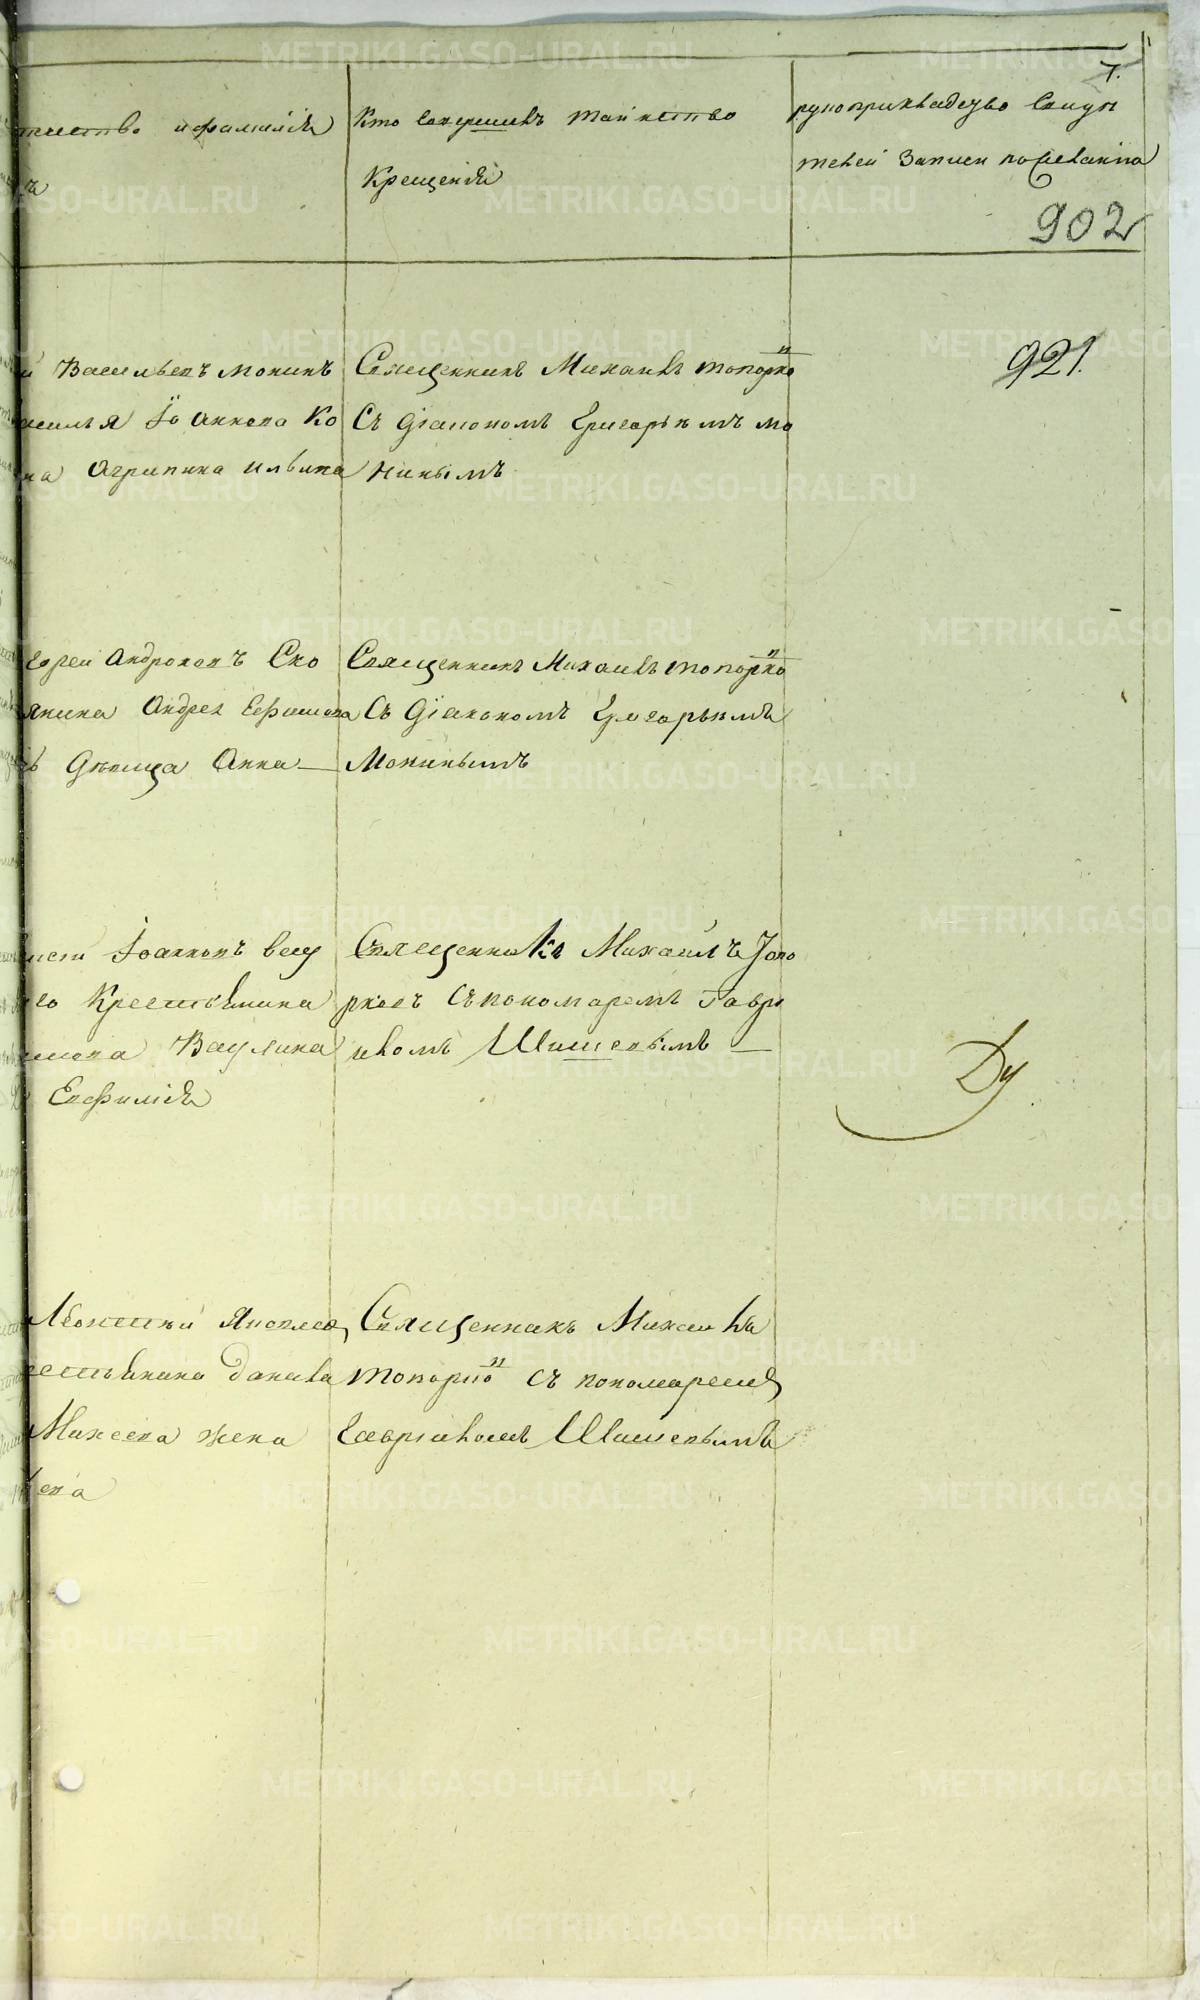 7.
тчество и фамилія
ъ
Кто совершилъ таинство
Крещенія
рукоприкладство свидѣ
телей записи по желанію
902
921.
й Васильевъ Мокинъ
асилья Іоаннова Ко
на Агрипина Ильина
Священникъ Михаилъ Топорко в
Съ Діакономъ Григорьемъ Мо
кинымъ
Сергеи Андроновъ Ско
янина Андрея Ефимова
ъ Дѣвица Анна
Священникъ Михаилъ Топорко в
Съ Діакономъ Григорьемъ
Мокинымъ
Іоанновъ
го Крестьянина
Ваулина
Евфимія
Священникъ Михаилъ Топо
рковъ съ пономаремъ Гаври
иломъ Шишевымъ
Ду
Леонтій Яковлев
естьянина Данила
Михеева жена
ева
Священникъ Михаилъ
Топорко в съ пономаремъ
Гавріиломъ Шишевымъ
METRIKI.GASO-URAL.RU